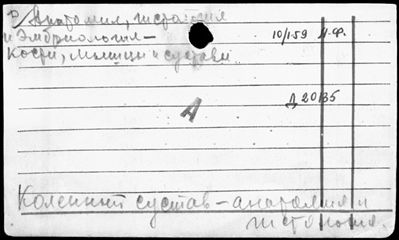 Р/Анатомия, гистология
и Эмбриология —
Кости, Мышцы и суставы
10/I-59 Н-Ф.
А
Д 20135
Коленный сустав — анатомия и
гистология.